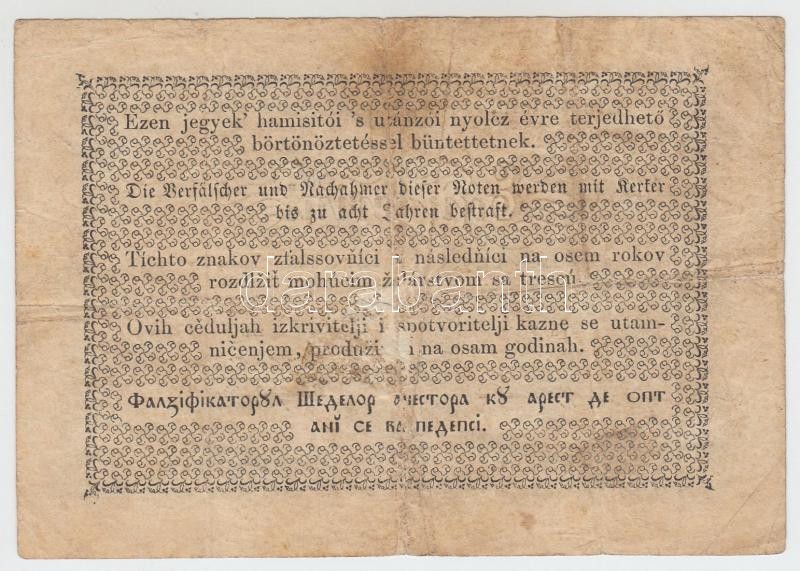 Ezen jegyek' hamisitói 's utánzói nyolcz évre terjedhető
börtönöztetéssel büntettetnek.
Die Verfälscher und Nachahmer dieser Noten werden mit Kerker
bis zu acht Jahren bestraft.
Tíchto znakov zfalssovňíci i násľedňíci na osem rokov
rozdlžiť mohúcim žalárstvom sa trescú.
Ovih cěduljah izkrivitelji i spotvoritelji kazne se utam-
ničenjem, na osam godinah.
Фалꙁіфікаторꙋл Шеделор ачестора кꙋ арест де опт
анї се ва педепсі.
darabanth